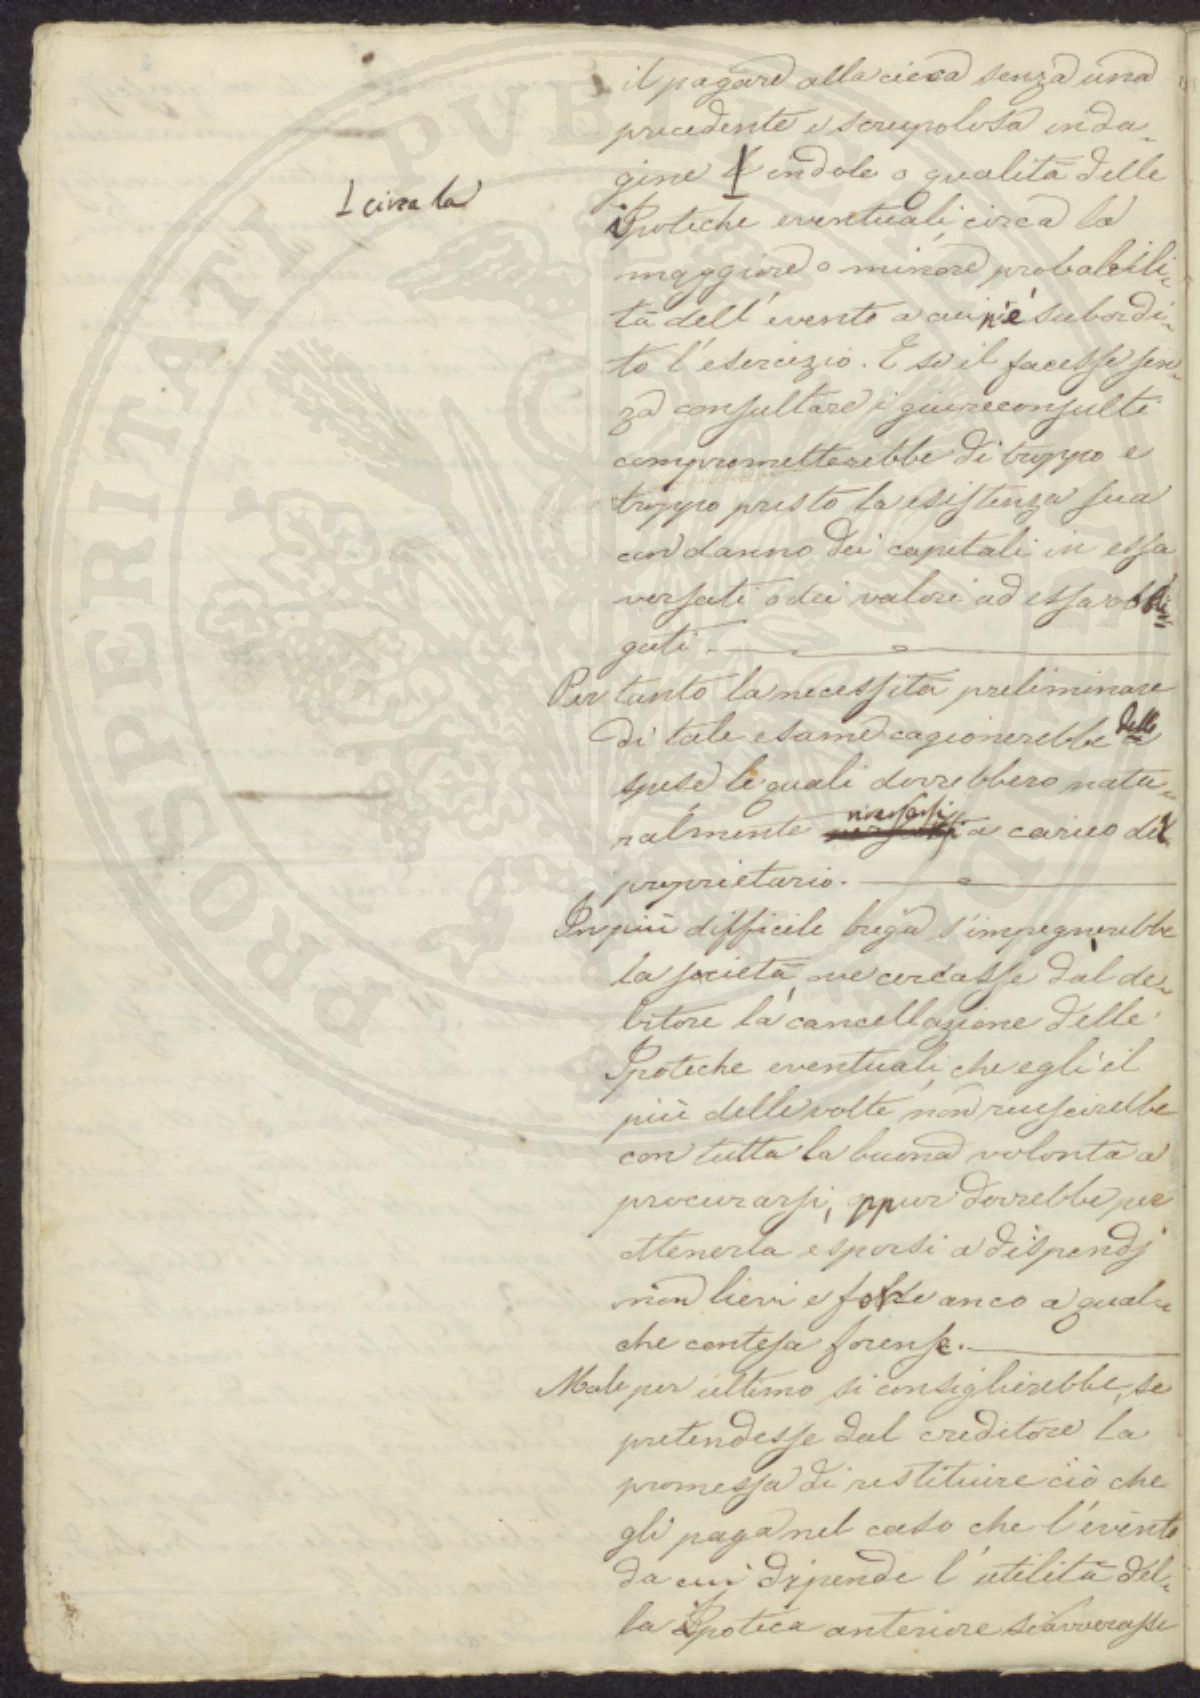 il pagare alla cieca senza una
precedente e scrupolosa inda-
gine ⊥ indole o qualità delle
⊥ circa la
ipoteche eventuali, circa la
maggiore o minore probabili-
tà dell'evento a cui n'è subordi-
to l'esercizio. E se il facesse sen-
za consultare i giureconsulti
comprometterebbe di troppo e
troppo presto la esistenza sua
con danno dei capitali in essa
versati o dei valori ad essa obbli-
gati.
Per tanto la necessità preliminare
di tale esame cagionerebbe delle
spese le quali dovrebbero natu-
ralmente riversarsi a carico del
proprietario.
In più difficile briga s'impegnerebbe
la società, ove cercasse dal de-
bitore la cancellazione delle
Ipoteche eventuali, che egli il
più delle volte non riuscirebbe
con tutta la buona volontà a
procurarsi, oppur dovrebbe per
ottenerla esporsi a dispendj
non lievi e forse anco a qual-
che contesa forense.
Male per ultimo si consiglierebbe, se
pretendesse dal creditore la
promessa di restituire ciò che
gli paga nel caso che l'evento
da cui dipende l'utilità del-
la Ipoteca anteriore si avverasse
PROSPERITATI PUBLICAE